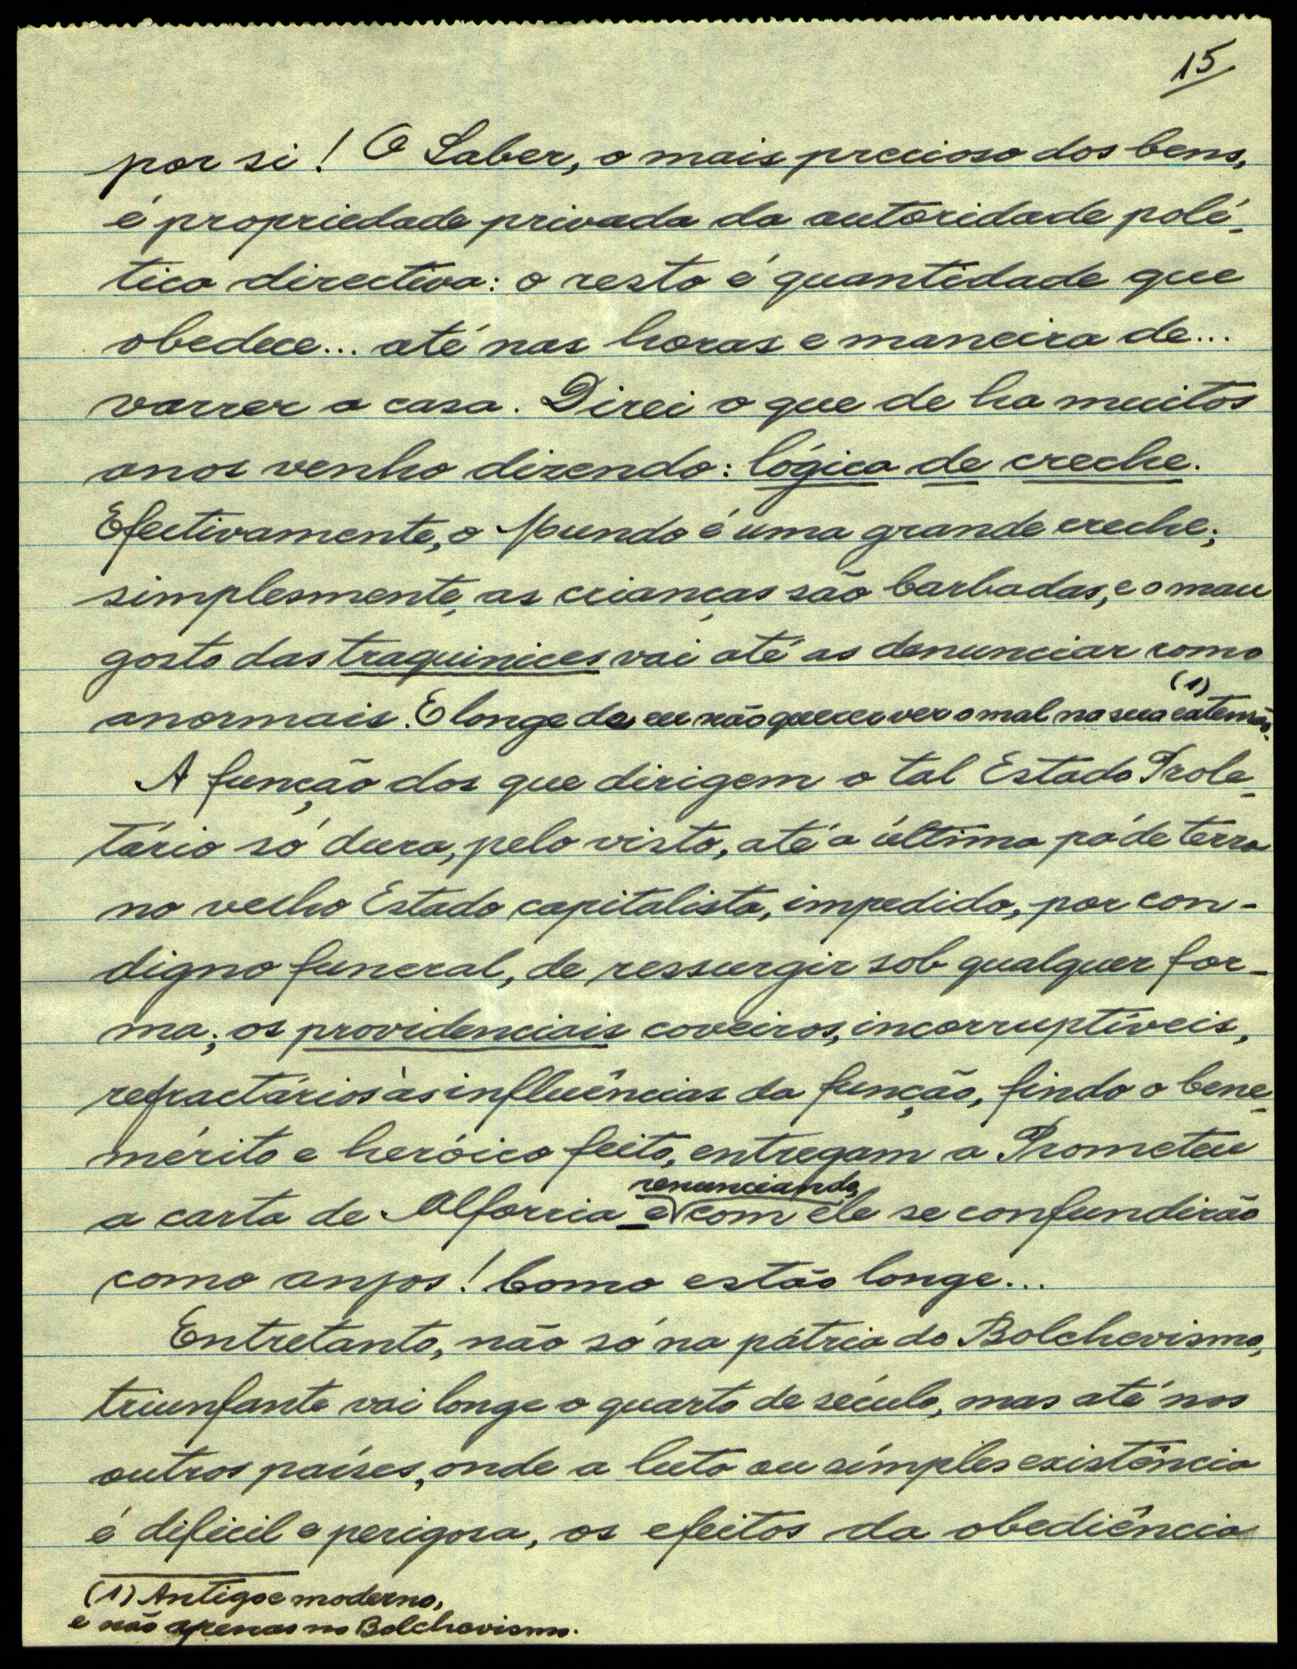 15
por si! O Saber, o mais precioso dos bens,
é propriedade privada da autoridade polí-
tica directiva: o resto é quantidade que
obedece... até nas horas e maneira de...
varrer a casa. Direi o que de ha muitos
anos venho dizendo: lógica de creche.
Efectivamente, o Mundo é uma grande creche;
simplesmente, as crianças são barbadas, e o mau
gosto das traquinices vai até as denunciar como
anormais. E longe de eu não querer ver o mal na sua extensão. (1)
A função dos que dirigem o tal Estado Prole-
tário só dura, pelo visto, até a última pá de terra
no velho Estado capitalista, impedido, por con-
digno funeral, de ressurgir sob qualquer for-
ma; os providenciais coveiros, incorruptíveis,
refractários às influências da função, findo o bene-
mérito e heróico feito, entregam a Prometeu
a carta de Alforria e renunciando, com ele se confundirão
como anjos! Como estão longe...
Entretanto, não só na pátria do Bolchevismo,
triunfante vai longe o quarto de século, mas até nos
outros países, onde a luta ou simples existência
é difícil e perigosa, os efeitos da obediência
(1) Antigo e moderno,
e não apenas no Bolchevismo.